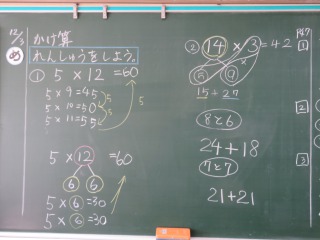 12/3 かけ算
め れんしゅうをしよう。
① 5×12=60
5×9=45
5×10=50
5×11=55
5
5
5
5×12=60
6 6
5×6=30
5×6=30
② 14×3=42
5 9
15+27
8と6
24+18
7と7
21+21
P47
1
2
3